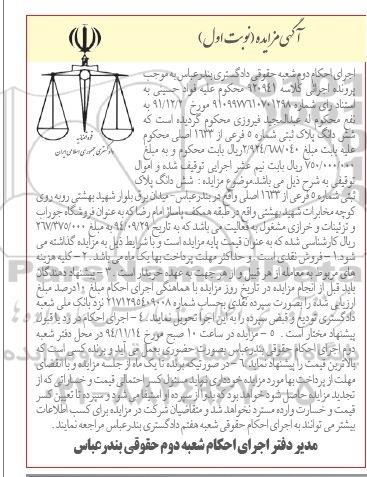 آگهی مزایده (نوبت اول)
قوه قضائیه
دادگستری جمهوری اسلامی ایران
اجرای احکام دوم شعبه حقوقی دادگستری بندرعباس به موجب
پرونده اجرائی کلاسه ۹۲۰۹۴۱ محکوم علیه فواد حسینی به
استناد رای شماره ۹۱۰۹۹۷۷۶۱۰۷۰۱۲۹۸ مورخ ۹۱/۱۲/۲۰
نفع محکوم له عبدالمجید فیروزی محکوم گردیده است که
شش دانگ پلاک ثبتی شماره ۵ فرعی از ۱۶۳۳ اصلی محکوم
علیه بابت مبلغ ۲/۹۲۴/۶۸۷/۰۴۰ ریال بابت محکوم و به مبلغ
۷۵۰/۰۰۰/۰۰۰ ریال بابت نیم عشر اجرایی توقیف شده و اموال
توقیفی به شرح ذیل می باشد موضوع مزایده: شش دانگ پلاک
ثبتی شماره ۵ فرعی از ۱۶۳۳ اصلی واقع در بندرعباس - میدان برق بلوار شهید بهشتی روبه روی
کوچه مخابرات شهید بهشتی واقع در طبقه همکف پاساژ امام رضا که به عنوان فروشگاه جوراب
و تزئینات و خرازی مشغول به فعالیت می باشد که به تاریخ ۹۴/۰۹/۲۹ به مبلغ ۲۶۷/۳۷۵/۰۰۰
ریال کارشناسی شده که به عنوان قیمت پایه مزایده است و با شرایط ذیل به مزایده گذاشته می
شود. ۱ - فروش نقدی است و حداکثر مهلت پرداخت بها یک ماه می باشد. ۲ - کلیه هزینه
های مربوط به معامله از هر قبیل و از هر جهت به عهده خریدار است. ۳ - پیشنهاد دهندگان
باید قبل از انجام مزایده در تاریخ روز مزایده با هماهنگی اجرای احکام مبلغ ۱۰ درصد مبلغ
ارزیابی شده را بصورت سپرده نقدی بحساب شماره ۲۱۷۱۲۹۵۴۰۹۰۰۸ نزد بانک ملی شعبه
دادگستری تودیع و قبض سپرده را به این اجرا تحویل نمایند. ۴ - اجرای احکام در رد یا قبول
پیشنهاد مختار است. ۵ - مزایده در ساعت ۱۰ صبح مورخ ۹۴/۱۱/۱۴ در محل دفتر شعبه
دوم اجرای احکام حقوقی بندرعباس بصورت حضوری بعمل می آید و برنده کسی است که
بالاترین قیمت را پیشنهاد نماید. ۶ - در صورتیکه برنده تا یک ماه از جلسه مزایده و با انقضای
مهلت از پرداخت بها مورد مزایده خودداری نماید مسئول کسر احتمالی قیمت و خساراتی که از
تجدید مزایده حاصل شود خواهد بود که بدوا از سپرده او استیفا می شود و سپرده تا تعیین کسر
قیمت و خسارت وارده مسترد نخواهد شد و متقاضیان شرکت در مزایده برای کسب اطلاعات
بیشتر می توانند به اجرای احکام حقوقی شعبه هفتم دادگستری بندرعباس مراجعه نمایند.
مدیر دفتر اجرای احکام شعبه دوم حقوقی بندرعباس